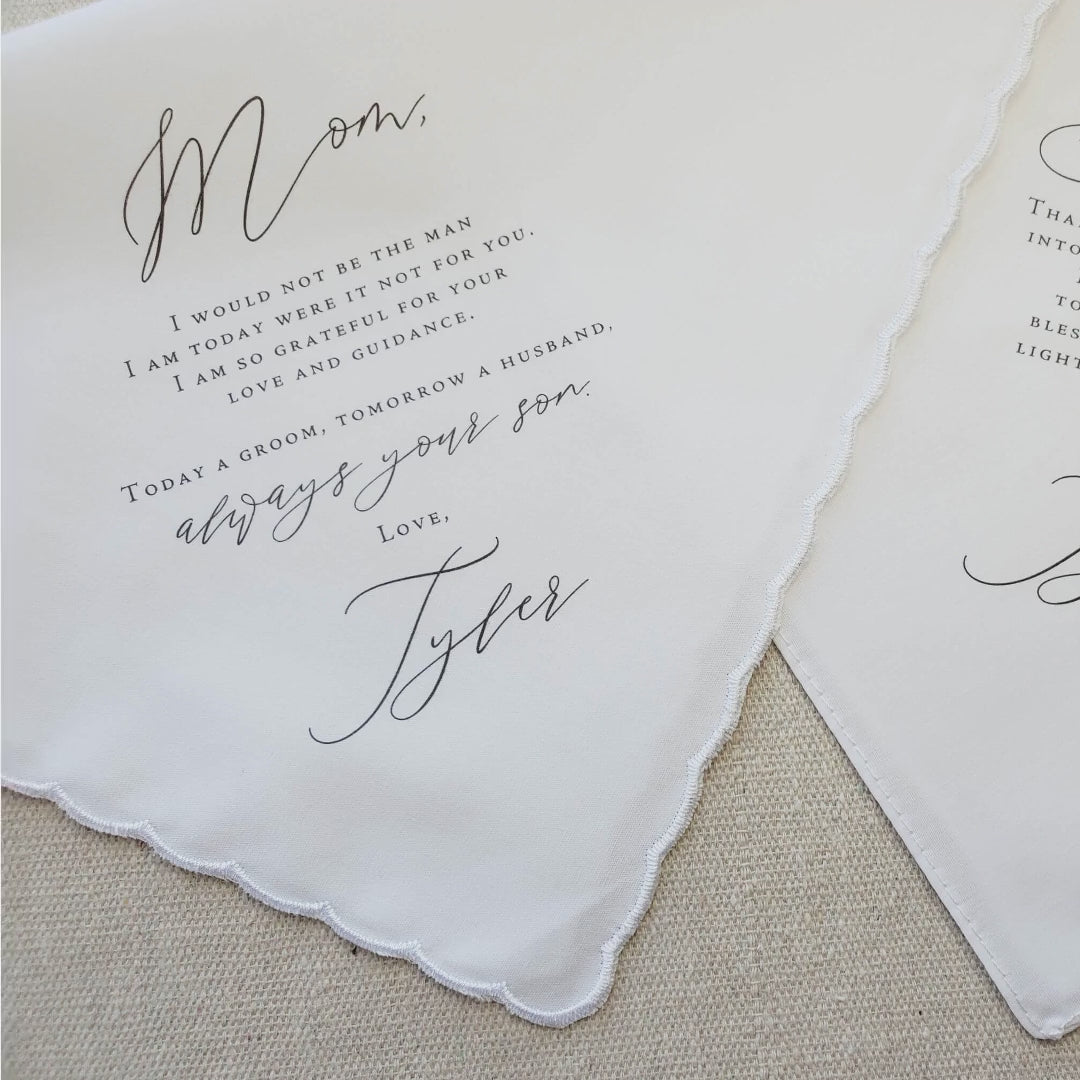 Mom,
I WOULD NOT BE THE MAN
I AM TODAY WERE IT NOT FOR YOU.
I AM SO GRATEFUL FOR YOUR
LOVE AND GUIDANCE.
TODAY A GROOM, TOMORROW A HUSBAND,
always your son.
LOVE,
Tyler
INTO